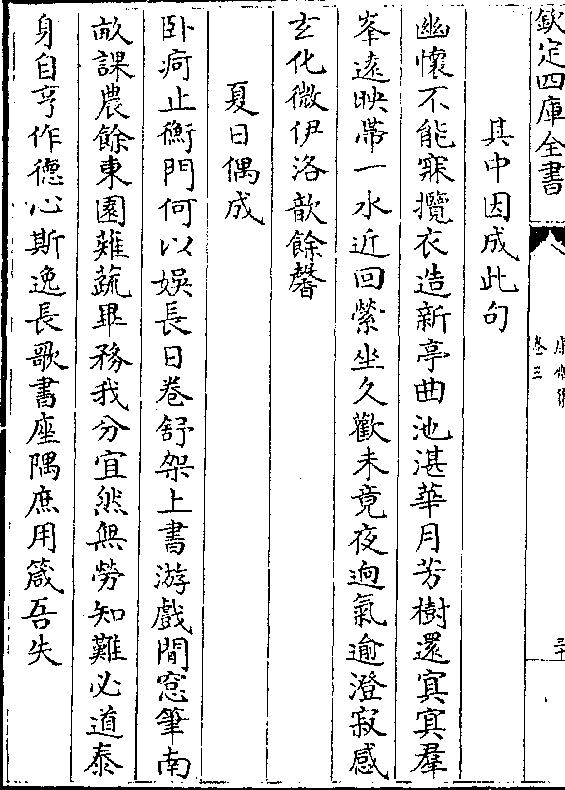 欽定四庫全書
卷三
三十
其中因成此句
幽懷不能寐攬衣造新亭曲池湛華月芳樹還冥冥羣
峯遠映帶一水近回縈坐久歡未竟夜逈氣逾澄寂感
玄化微伊洛歆餘馨
夏日偶成
卧痾止衡門何以娛長日卷舒架上書游戲閒窓筆南
畝課農餘東園蓺蔬畢務我分宜然無勞知難必道泰
身自亨作德心斯逸長歌書座隅庶用箴吾失